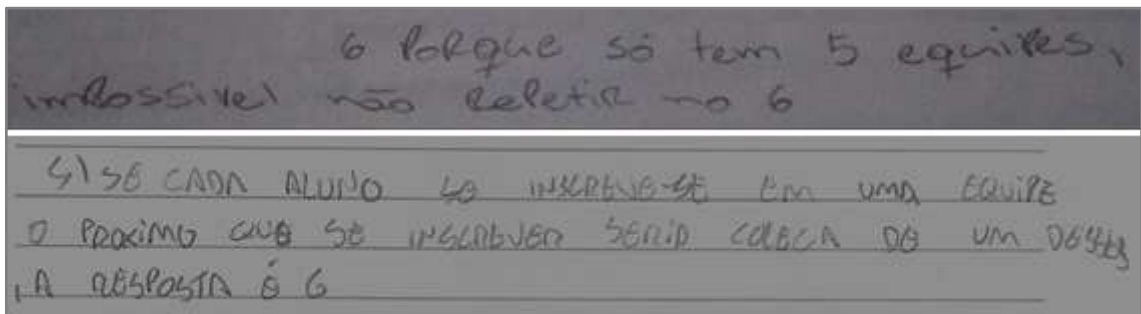 6 PoRque só tem 5 equipes,
impossivel não RepetiR no 6
5) SE CADA ALUNO SO INSCREVE-SE EM UMA EQUIPE
O PROXIMO QUE SE INSCREVER SERIA COLEGA DE UM DESSES
, A RESPOSTA É 6